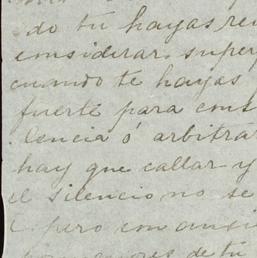 do tú hayas re
considerar super
cuando te hayas
fuerte para cons
lencia ó arbitra
hay que callar y
el silencio no se
pero con ansi
de tú